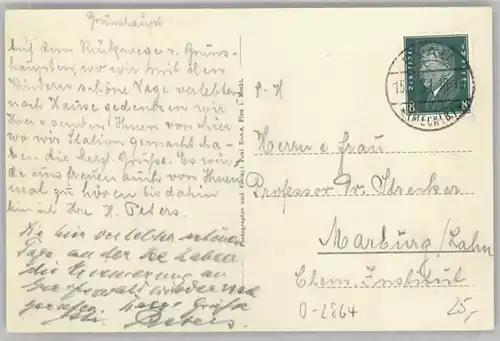 Grünshaupt
Auf dem Rückwege v. Gruns-
haupten, wo wir mit den
Kindern schöne Tage verlebten
nach Hause gedenken wir
Ihrer u. senden Ihnen von hier
wo wir Station gemacht ha-
ben die herzl. Grüße. Es würde
uns freuen auch von Ihnen
mal zu hören bis dahin
bin ich Ihr H. Peters.
Die hier verlebten schönen
Tage an der See haben
die Erinnerung an
Greifswald wieder wach
gerufen. Herzl. Grüße
Ihr Peters.
Photographie und Verlag: Paul Ecke, Plau i. Meckl.
P-H
DEUTSCHES REICH
8 8
15.
(MECKLB)
Herrn u Frau
Professor Dr. Strecker
Marburg/Lahn
Chem. Institut
0-2864
25,-